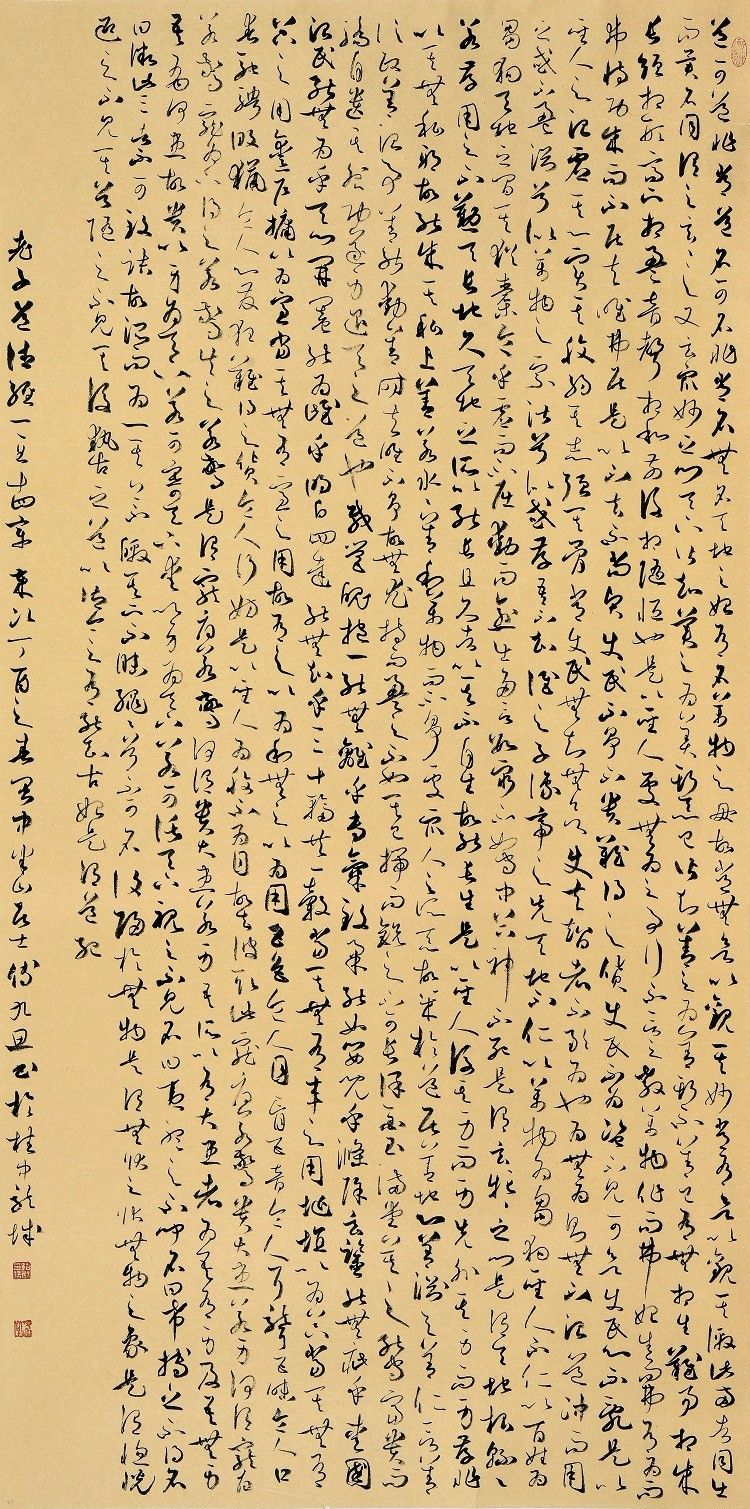 道可道非常道名可名非常名無名天地之始有名萬物之母故常無欲以觀其妙常有欲以觀其徼此兩者同出
而異名同謂之玄玄之又玄眾妙之門天下皆知美之為美斯惡已皆知善之為善斯不善已有無相生難易相成
長短相形高下相盈音聲相和前後相隨恆也是以聖人處無為之事行不言之教萬物作而弗始生而弗有為而
弗恃功成而不居夫唯弗居是以不去不尚賢使民不爭不貴難得之貨使民不為盜不見可欲使民心不亂是以
聖人之治虛其心實其腹弱其志強其骨常使民無知無欲使夫智者不敢為也為無為則無不治道沖而用
之或不盈淵兮似萬物之宗湛兮似或存吾不知誰之子象帝之先天地不仁以萬物為芻狗聖人不仁以百姓為
芻狗天地之間其猶橐籥乎虛而不屈動而愈出多言數窮不如守中谷神不死是謂玄牝玄牝之門是謂天地根綿綿
若存用之不勤天長地久天地之所以能長且久者以其不自生故能長生是以聖人後其身而身先外其身而身存非
以其無私邪故能成其私上善若水水善利萬物而不爭處眾人之所惡故幾於道居善地心善淵與善仁言善
信政善治事善能動善時夫唯不爭故無尤持而盈之不如其已揣而銳之不可長保金玉滿堂莫之能守富貴而
驕自遺其咎功遂身退天之道也載營魄抱一能無離乎專氣致柔能如嬰兒乎滌除玄鑒能無疵乎愛國
治民能無為乎天門開闔能為雌乎明白四達能無知乎三十輻共一轂當其無有車之用埏埴以為器當其無有
器之用鑿戶牖以為室當其無有室之用故有之以為利無之以為用五色令人目盲五音令人耳聾五味令人口
爽馳騁畋獵令人心發狂難得之貨令人行妨是以聖人為腹不為目故去彼取此寵辱若驚貴大患若身何謂寵辱
若驚寵為下得之若驚失之若驚是謂寵辱若驚何謂貴大患若身吾所以有大患者為吾有身及吾無身
吾有何患故貴以身為天下若可寄天下愛以身為天下若可託天下視之不見名曰夷聽之不聞名曰希搏之不得名
曰微此三者不可致詰故混而為一其上不皦其下不昧繩繩兮不可名復歸於無物是謂無狀之狀無物之象是謂惚恍
迎之不見其首隨之不見其後執古之道以御今之有能知古始是謂道紀
老子道德經一至十四章歲次丁酉之春半山居士書於桂中龍城